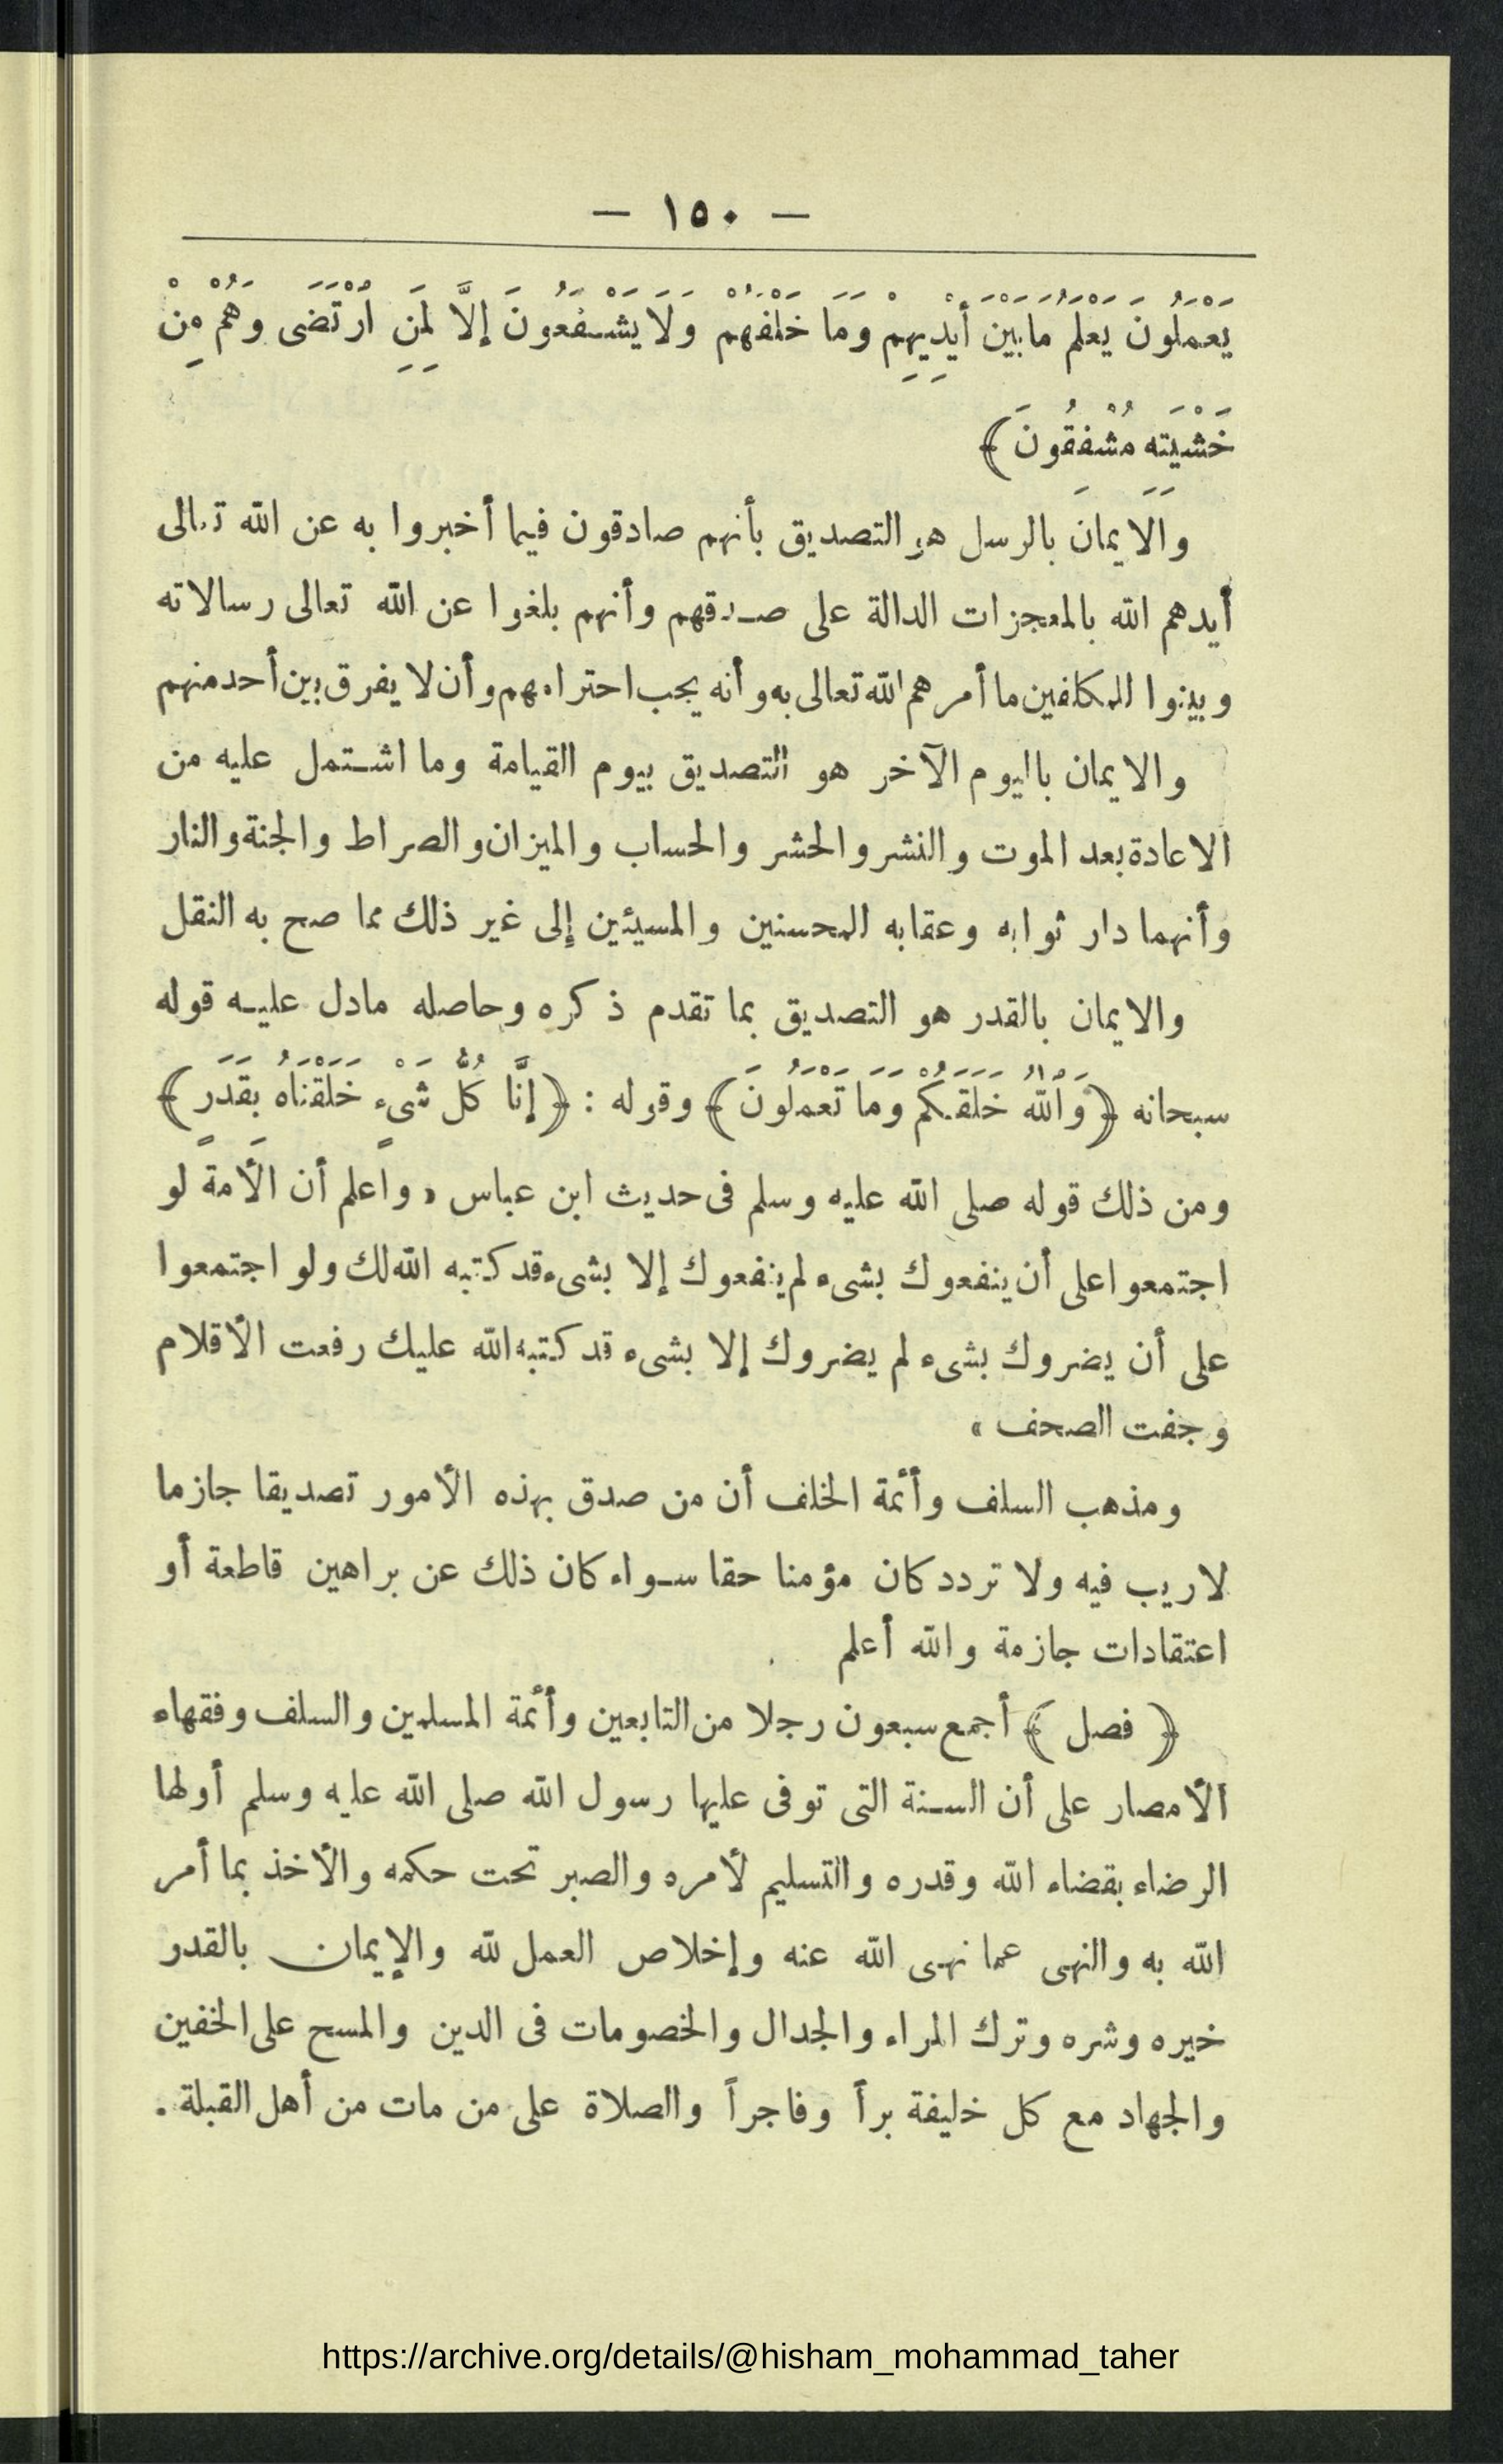 — ١٥٠ —
يَعْمَلُونَ يَعْلَمُ مَا بَيْنَ أَيْدِيهِمْ وَمَا خَلْفَهُمْ وَلَا يَشْفَعُونَ إِلَّا لِمَنِ ارْتَضَى وَهُمْ مِنْ
خَشْيَتِهِ مُشْفِقُونَ ﴾
والايمان بالرسل هو التصديق بأنهم صادقون فيما أخبروا به عن الله تعالى
أيدهم الله بالمعجزات الدالة على صدقهم وأنهم بلغوا عن الله تعالى رسالاته
وبينوا للمكلفين ما أمرهم الله تعالى به وأنه يجب احترامهم وأن لا يفرق بين أحد منهم
والايمان باليوم الآخر هو التصديق بيوم القيامة وما اشتمل عليه من
الاعادة بعد الموت والنشر والحشر والحساب والميزان والصراط والجنة والنار
وأنهما دار ثوابه وعقابه للمحسنين والمسيئين إلى غير ذلك مما صح به النقل
والايمان بالقدر هو التصديق بما تقدم ذكره وحاصله مادل عليه قوله
سبحانه ﴿ وَاللهُ خَلَقَكُمْ وَمَا تَعْمَلُونَ ﴾ وقوله : ﴿ إِنَّا كُلَّ شَيْءٍ خَلَقْنَاهُ بِقَدَرٍ ﴾
ومن ذلك قوله صلى الله عليه وسلم فى حديث ابن عباس « واعلم أن الأمة لو
اجتمعوا على أن ينفعوك بشىء لم ينفعوك إلا بشىء قد كتبه الله لك ولو اجتمعوا
على أن يضروك بشىء لم يضروك إلا بشىء قد كتبه الله عليك رفعت الأقلام
وجفت الصحف »
ومذهب السلف وأئمة الخلف أن من صدق بهذه الأمور تصديقا جازما
لا ريب فيه ولا تردد كان مؤمنا حقا سواء كان ذلك عن براهين قاطعة أو
اعتقادات جازمة والله أعلم
﴿ فصل ﴾ أجمع سبعون رجلا من التابعين وأئمة المسلمين والسلف وفقهاء
الأمصار على أن السنة التى توفى عليها رسول الله صلى الله عليه وسلم أولها
الرضاء بقضاء الله وقدره والتسليم لأمره والصبر تحت حكمه والأخذ بما أمر
الله به والنهى عما نهى الله عنه وإخلاص العمل لله والإيمان بالقدر
خيره وشره وترك المراء والجدال والخصومات فى الدين والمسح على الخفين
والجهاد مع كل خليفة براً وفاجراً والصلاة على من مات من أهل القبلة .
https://archive.org/details/@hisham_mohammad_taher